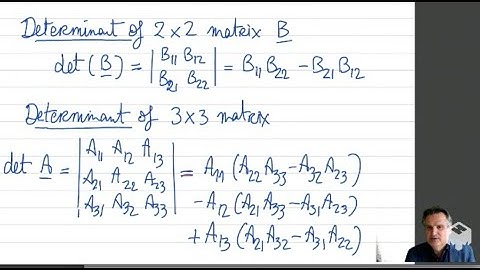 Determinant of 2×2 matrix B
det (B) = | B₁₁ B₁₂ | = B₁₁ B₂₂ − B₂₁ B₁₂
B₂₁ B₂₂
Determinant of 3×3 matrix
A₁₁ A₁₂ A₁₃
det A = | A₂₁ A₂₂ A₂₃ | = A₁₁ (A₂₂ A₃₃ − A₃₂ A₂₃)
A₃₁ A₃₂ A₃₃
− A₁₂ (A₂₁ A₃₃ − A₃₁ A₂₃)
+ A₁₃ (A₂₁ A₃₂ − A₃₁ A₂₂)